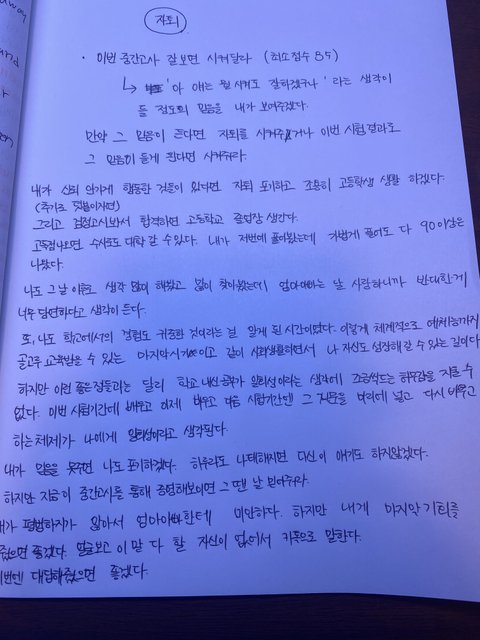 away
and
자퇴
· 이번 중간고사 잘보면 시켜달라 (최소점수 85)
↳ '아 얘는 뭘 시켜도 잘하겠구나' 라는 생각이
들 정도의 믿음을 내가 보여주겠다.
만약 그 믿음이 든다면 자퇴를 시켜주거나 이번 시험결과로
그 믿음이 들게 된다면 시켜주라.
내가 신뢰 안가게 행동한 것들이 있다면 자퇴 포기하고 조용히 고등학생 생활 하겠다.
(추가로 덧붙이자면)
그리고 검정고시봐서 합격하면 고등학교 졸업장 생긴다.
수시로도 대학 갈 수 있다. 내가 저번에 풀어봤는데 가볍게 풀어도 다 90이상은
나왔다.
나도 그날 이후로 생각 많이 해봤고 많이 찾아봤는데 엄마아빠는 날 사랑하니까 반대한게
너무 당연하다고 생각이 든다.
또, 나도 학교에서의 경험도 귀중한 것이라는 걸 알게 된 시간이었다. 이렇게 체계적으로 예체능까지
골고루 교육받을 수 있는 마지막시기 같이 사회생활하면서 나 자신도 성장해 갈 수 있는 길이다
하지만 이런 좋은점들과는 달리 학교 내신공부가 생각에 조금씩드는 허무감을 지울 수
없다. 이번 시험기간에 배우고 이제 배우고 다음 시험기간엔 그 지문을 버리고 다시 배우고
하는체제가 나에게 생각된다.
내가 믿음을 못주면 나도 포기하겠다. 하루라도 나태해지면 다신 이 얘기도 하지않겠다.
하지만 지금이 중간고사를 통해 증명해보이면 그땐 날 믿어주라.
내가 평범하지가 않아서 엄마아빠한테 미안하다. 하지만 내게 마지막 기회를
줬으면 좋겠다. 얼굴보고 이 말 다 할 자신이 없어서 카톡으로 말한다.
이번엔 대답해줬으면 좋겠다.